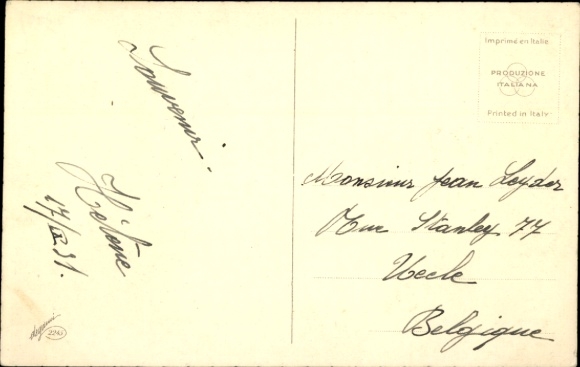 Souvenir.
17/IX 31.
Imprimé en Italie
PRODUZIONE
ITALIANA
Printed in Italy
Monsieur Jean Leyder
Rue Stanley 77
Uccle
Belgique
2243